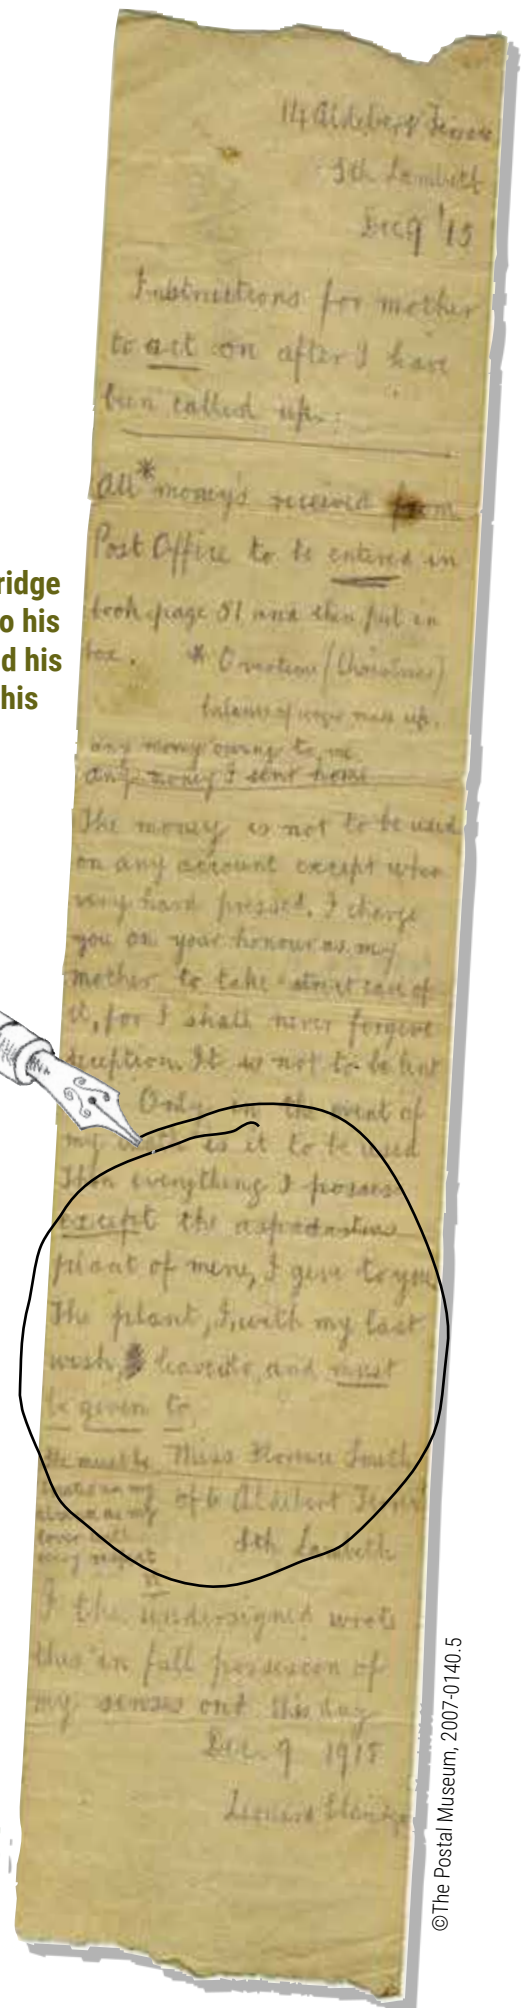 14 Aldebert Terrace
Sth Lambeth
Dec 9 '15
Instructions for mother
to act on after I have
been called up:
All * money's received from
Post Office to be entered in
book page 51 and then put in
box. * Overtime (Christmas)
balance of wages made up.
any money owing to me
any money I sent home
The money is not to be used
on any account except when
very hard pressed. I charge
you on your honour as my
mother to take strict care of
it, for I shall never forgive
deception. It is not to be lent
Only in the event of
my death is it to be used
Then everything I possess
except the aspedastra
plant of mine, I give to you.
The plant, I, with my last
wish, leave to, and must
be given to
Miss Florence Smith
of 6 Aldebert Terrace
Sth Lambeth
She must be
treated
very respect
I the undersigned wrote
this in full possession of
my senses on this day
Dec. 9 1915
Leonard Eldridge
ridge
o his
d his
his
©The Postal Museum, 2007-0140.5